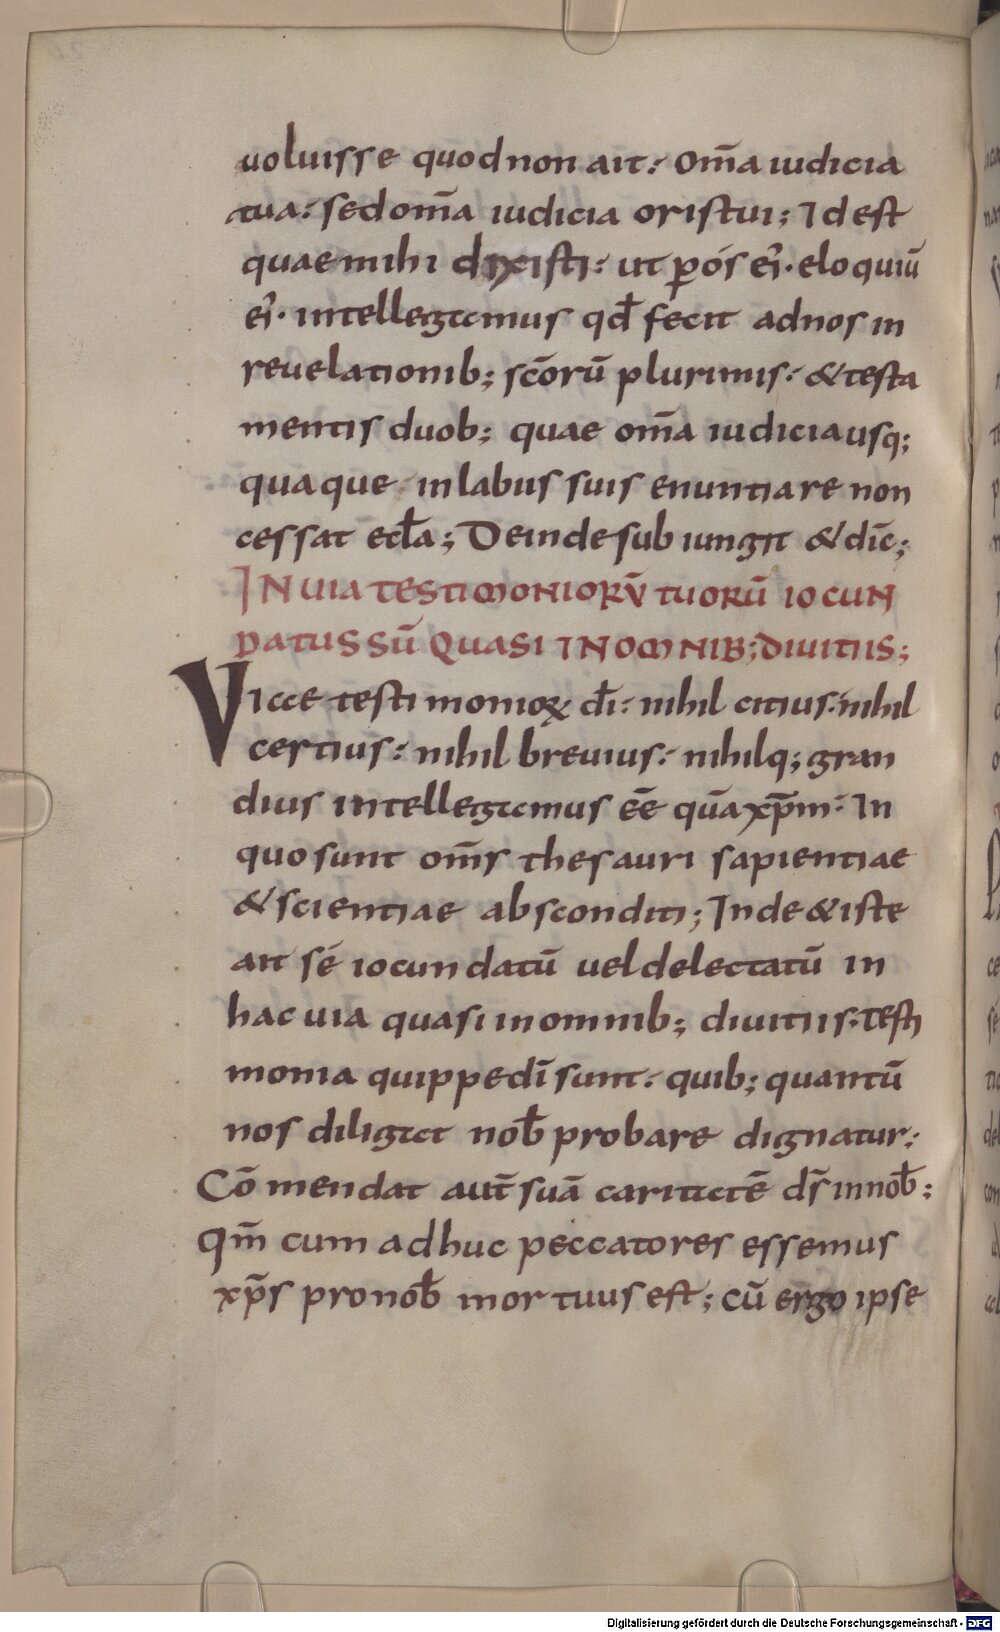 uoluisse quod non ait: om̄a iudicia
tua: sed om̄a iudicia oris tui; Id est
quae mihi dixisti: ut p̱ ós ei᷒· eloquiū
ei᷒· intellegamus qd̄ fecit ad nos in
reuelationib; sc̄orū plurimis: & testa
mentis duob; quae om̄a iudicia usq;
quaque in labiis suis enuntiare non
cessat eccl̄a; Deinde subiungit & dic̄;
IN UIA TESTIMONIORŪ TUORŪ IOCUN
DATUS SŪ QUASI IN OMNIB; DIUITIIS;
Viae testimonioꝝ dī: nihil citius: nihil
certius: nihil breuius: nihilq; gran
dius intellegamus eē quā xp̄m: In
quo sunt om̄s thesauri sapientiae
& scientiae absconditi; Inde & iste
ait sé iocundatū uel delectatū in
hac uia quasi in omnib; diuitiis: testi
monia quippe dī sunt: quib; quantū
nos diligat nob̄ probare dignatur:
Cōmendat aut̄ suā caritatē ds̄ in nob̄;
Qm̄ cum adhuc peccatores essemus
xp̄s pro nob̄ mortuus est; cū ergo ipse
Digitalisierung gefördert durch die Deutsche Forschungsgemeinschaft - DFG